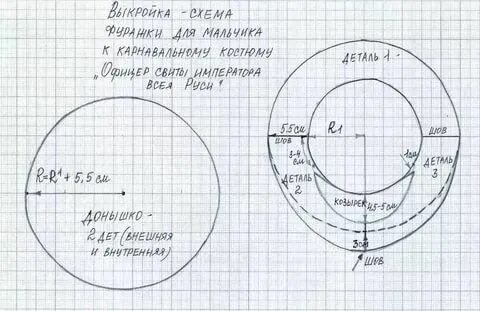 Выкройка - схема
фуражки для мальчика
к карнавальному костюму
"Офицер свиты императора
всея Руси"
R=R¹+5,5 см
Донышко -
2 дет (внешняя
и внутренняя)
Деталь 1
5.5 см
шов
R1
шов
3-4
см
1 см
Деталь
2
Деталь
3
козырек
4,5-5 см
3 см
шов